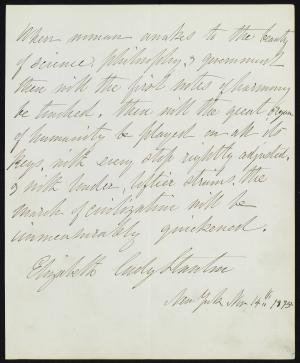 When woman awakes to the beauty
of science, philosophy, & government
then will the first notes of harmony
be touched. then will the great organ
of humanity be played in all its
keys, with every stop rightly adjusted,
& with louder, loftier strains, the
march of civilization will be
immeasurably quickened.
Elizabeth Cady Stanton
New York Nov 14th